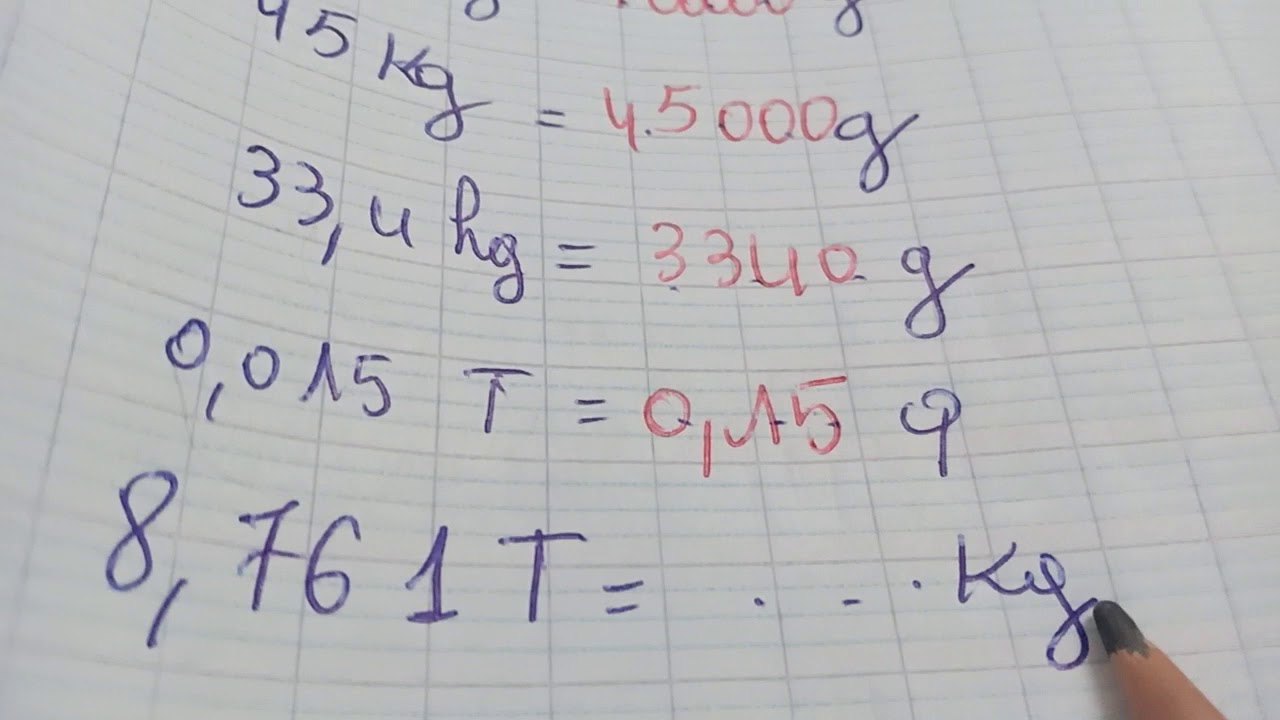 45 Kg = 45000g
33,4 hg = 3340 g
0,015 T = 0,15 q
8,761 T = . . . Kg